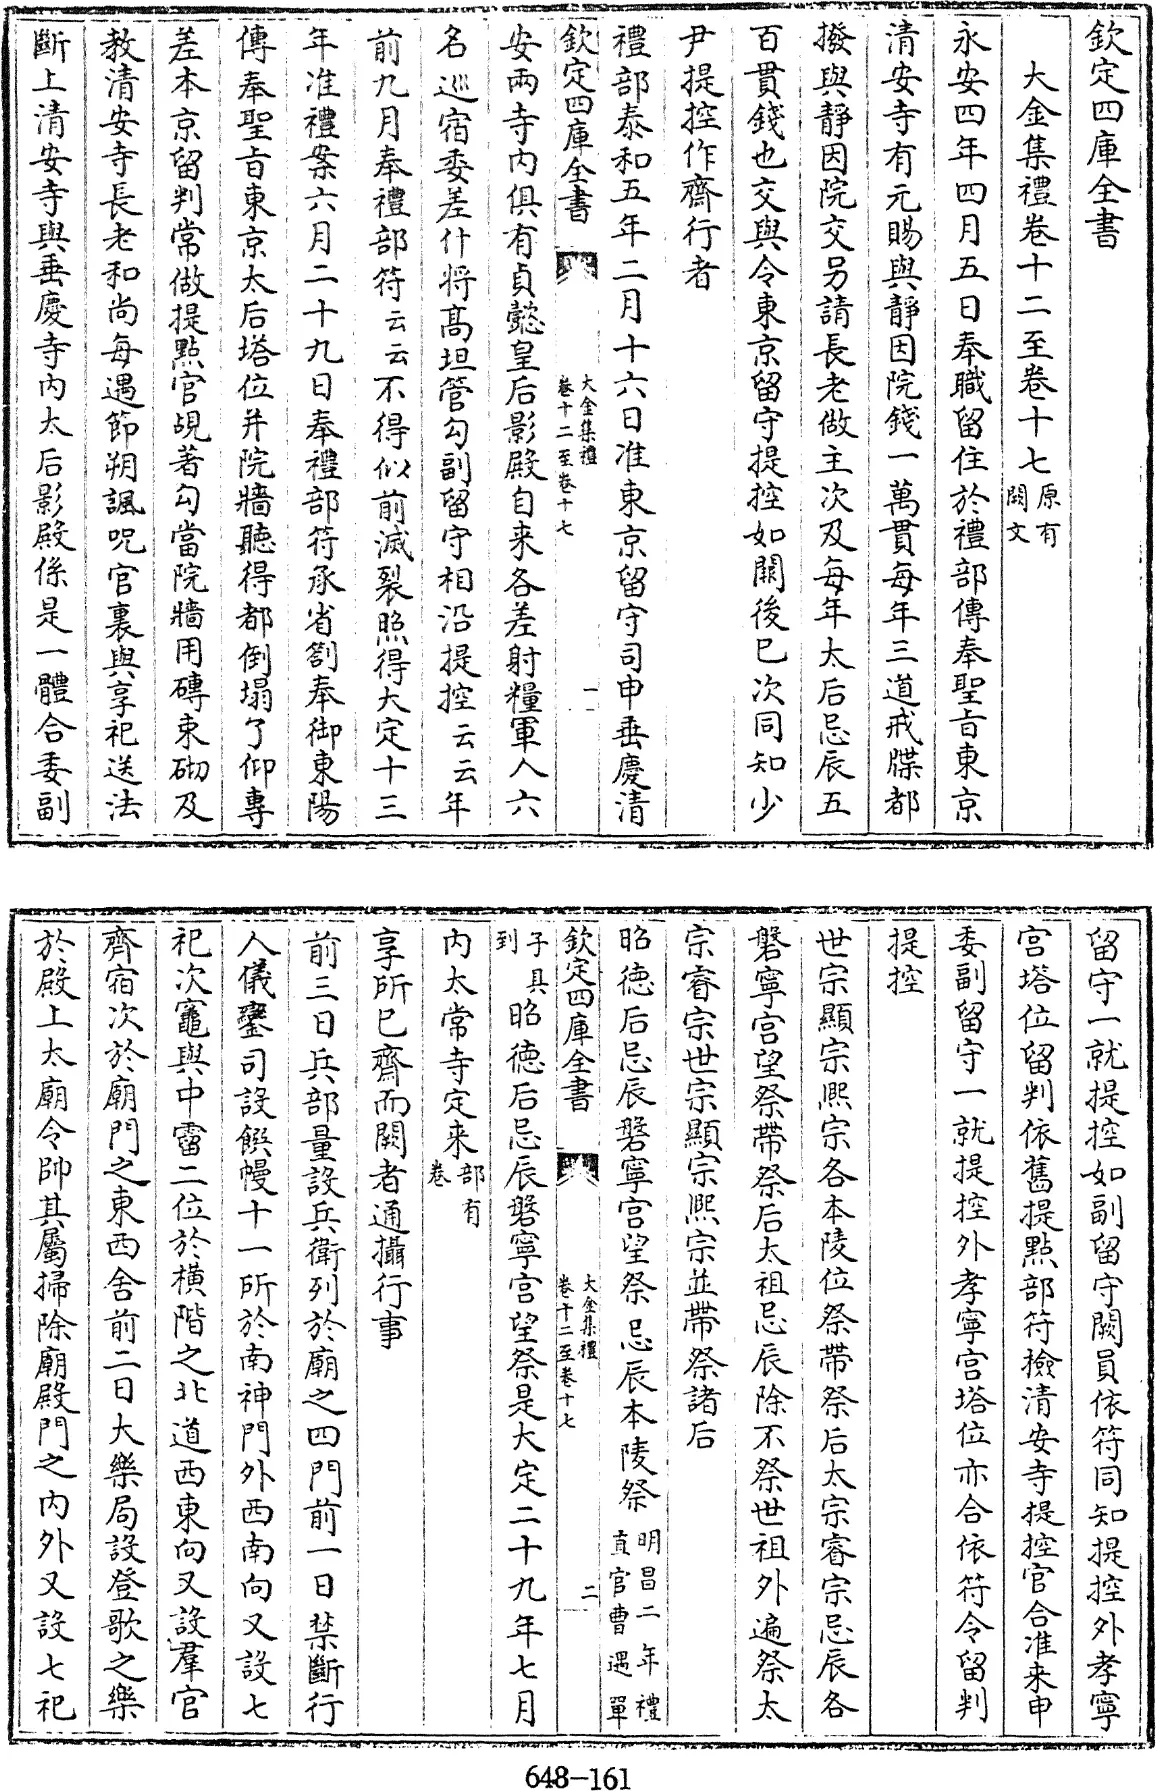 欽定四庫全書
大金集禮卷十二至卷十七原有闕文
永安四年四月五日奉職留住於禮部傳奉聖旨東京
清安寺有元賜與靜因院錢一萬貫每年三道戒牒都
撥與靜因院交另請長老做主次及每年太后忌辰五
百貫錢也交與令東京留守提控如闕後已次同知少
尹提控作齋行者
禮部泰和五年二月十六日准東京留守司申垂慶清
欽定四庫全書
大金集禮卷十二至卷十七
一
安兩寺内俱有貞懿皇后影殿自来各差射糧軍人六
名巡宿委差什將髙坦管勾副留守相沿提控云云年
前九月奉禮部符云云不得似前滅裂照得大定十三
年准禮案六月二十九日奉禮部符承省劄奉御東陽
傳奉聖旨東京太后塔位并院牆聽得都倒塌了仰專
差本京留判常做提㸃官覷著勾當院牆用磚束砌及
教清安寺長老和尚每遇節朔諷呪官裏與享祀送法
斷上清安寺與垂慶寺内太后影殿係是一體合委副
留守一就提控如副留守闕員依符同知提控外孝寧
宫塔位留判依舊提㸃部符撿清安寺提控官合准来申
委副留守一就提控外孝寧宫塔位亦合依符令留判
提控
世宗顯宗熙宗各本陵位祭帶祭后太宗睿宗忌辰各
磐寧宫望祭帶祭后太祖忌辰除不祭世祖外遍祭太
宗睿宗世宗顯宗熙宗並帶祭諸后
昭德后忌辰磐寧宫望祭忌辰本陵祭明昌二年禮直官曹遇單
欽定四庫全書
大金集禮卷十二至卷十七
二
子具到昭德后忌辰磐寧宫望祭是大定二十九年七月
内太常寺定来部有卷
享所已齋而闕者通攝行事
前三日兵部量設兵衛列於廟之四門前一日禁斷行
人儀鸞司設饌幔十一所於南神門外西南向又設七
祀次竈與中霤二位於横階之北道西東向又設羣官
齊宿次於廟門之東西舍前二日大樂局設登歌之樂
於殿上太廟令帥其屬掃除廟殿門之内外又設七祀
648-161